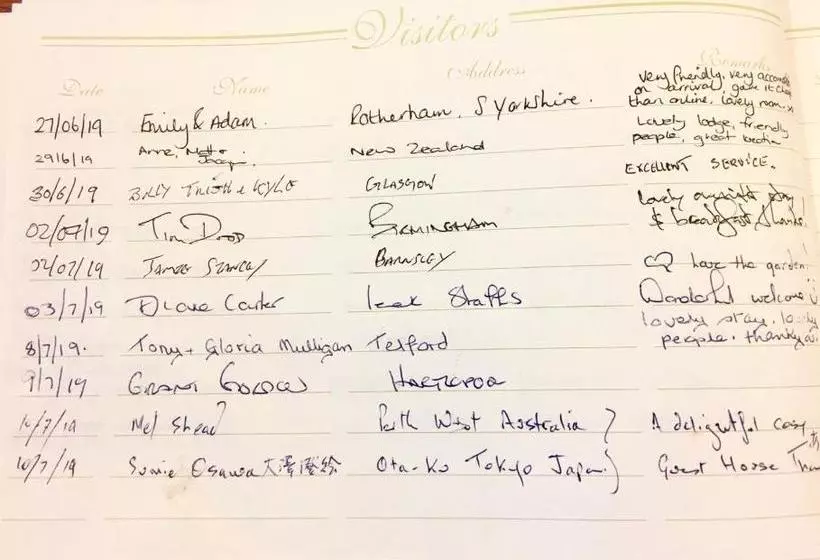 Visitors
Date Name Address Remarks
27/06/19 Emily & Adam. Rotherham, S Yorkshire. very friendly, very accom on arrival, gave it cheap than online, lovely room. x
29/6/19 Anne, New Zealand Lovely lodge, friendly people, great location
30/6/19 Billy Kyle Glasgow EXCELLENT SERVICE.
02/07/19 Tim Dodd BIRMINGHAM lovely overnight stay & breakfast thanks!
02/07/19 James Stanley BARNSLEY ♡ love the garden.
03/7/19 Diane Carter Leek Staffs Wonderful welcome
8/7/19. Tony + Gloria Mulligan Telford lovely stay, lovely people. thankyou.
9/7/19 GRANT HARTLEPOOL
10/7/19 Mel Shead Perth West Australia } A delightful cosy
10/7/19 Sumie Osawa 大澤澄絵 Ota-ku Tokyo Japan. } Guest House Than